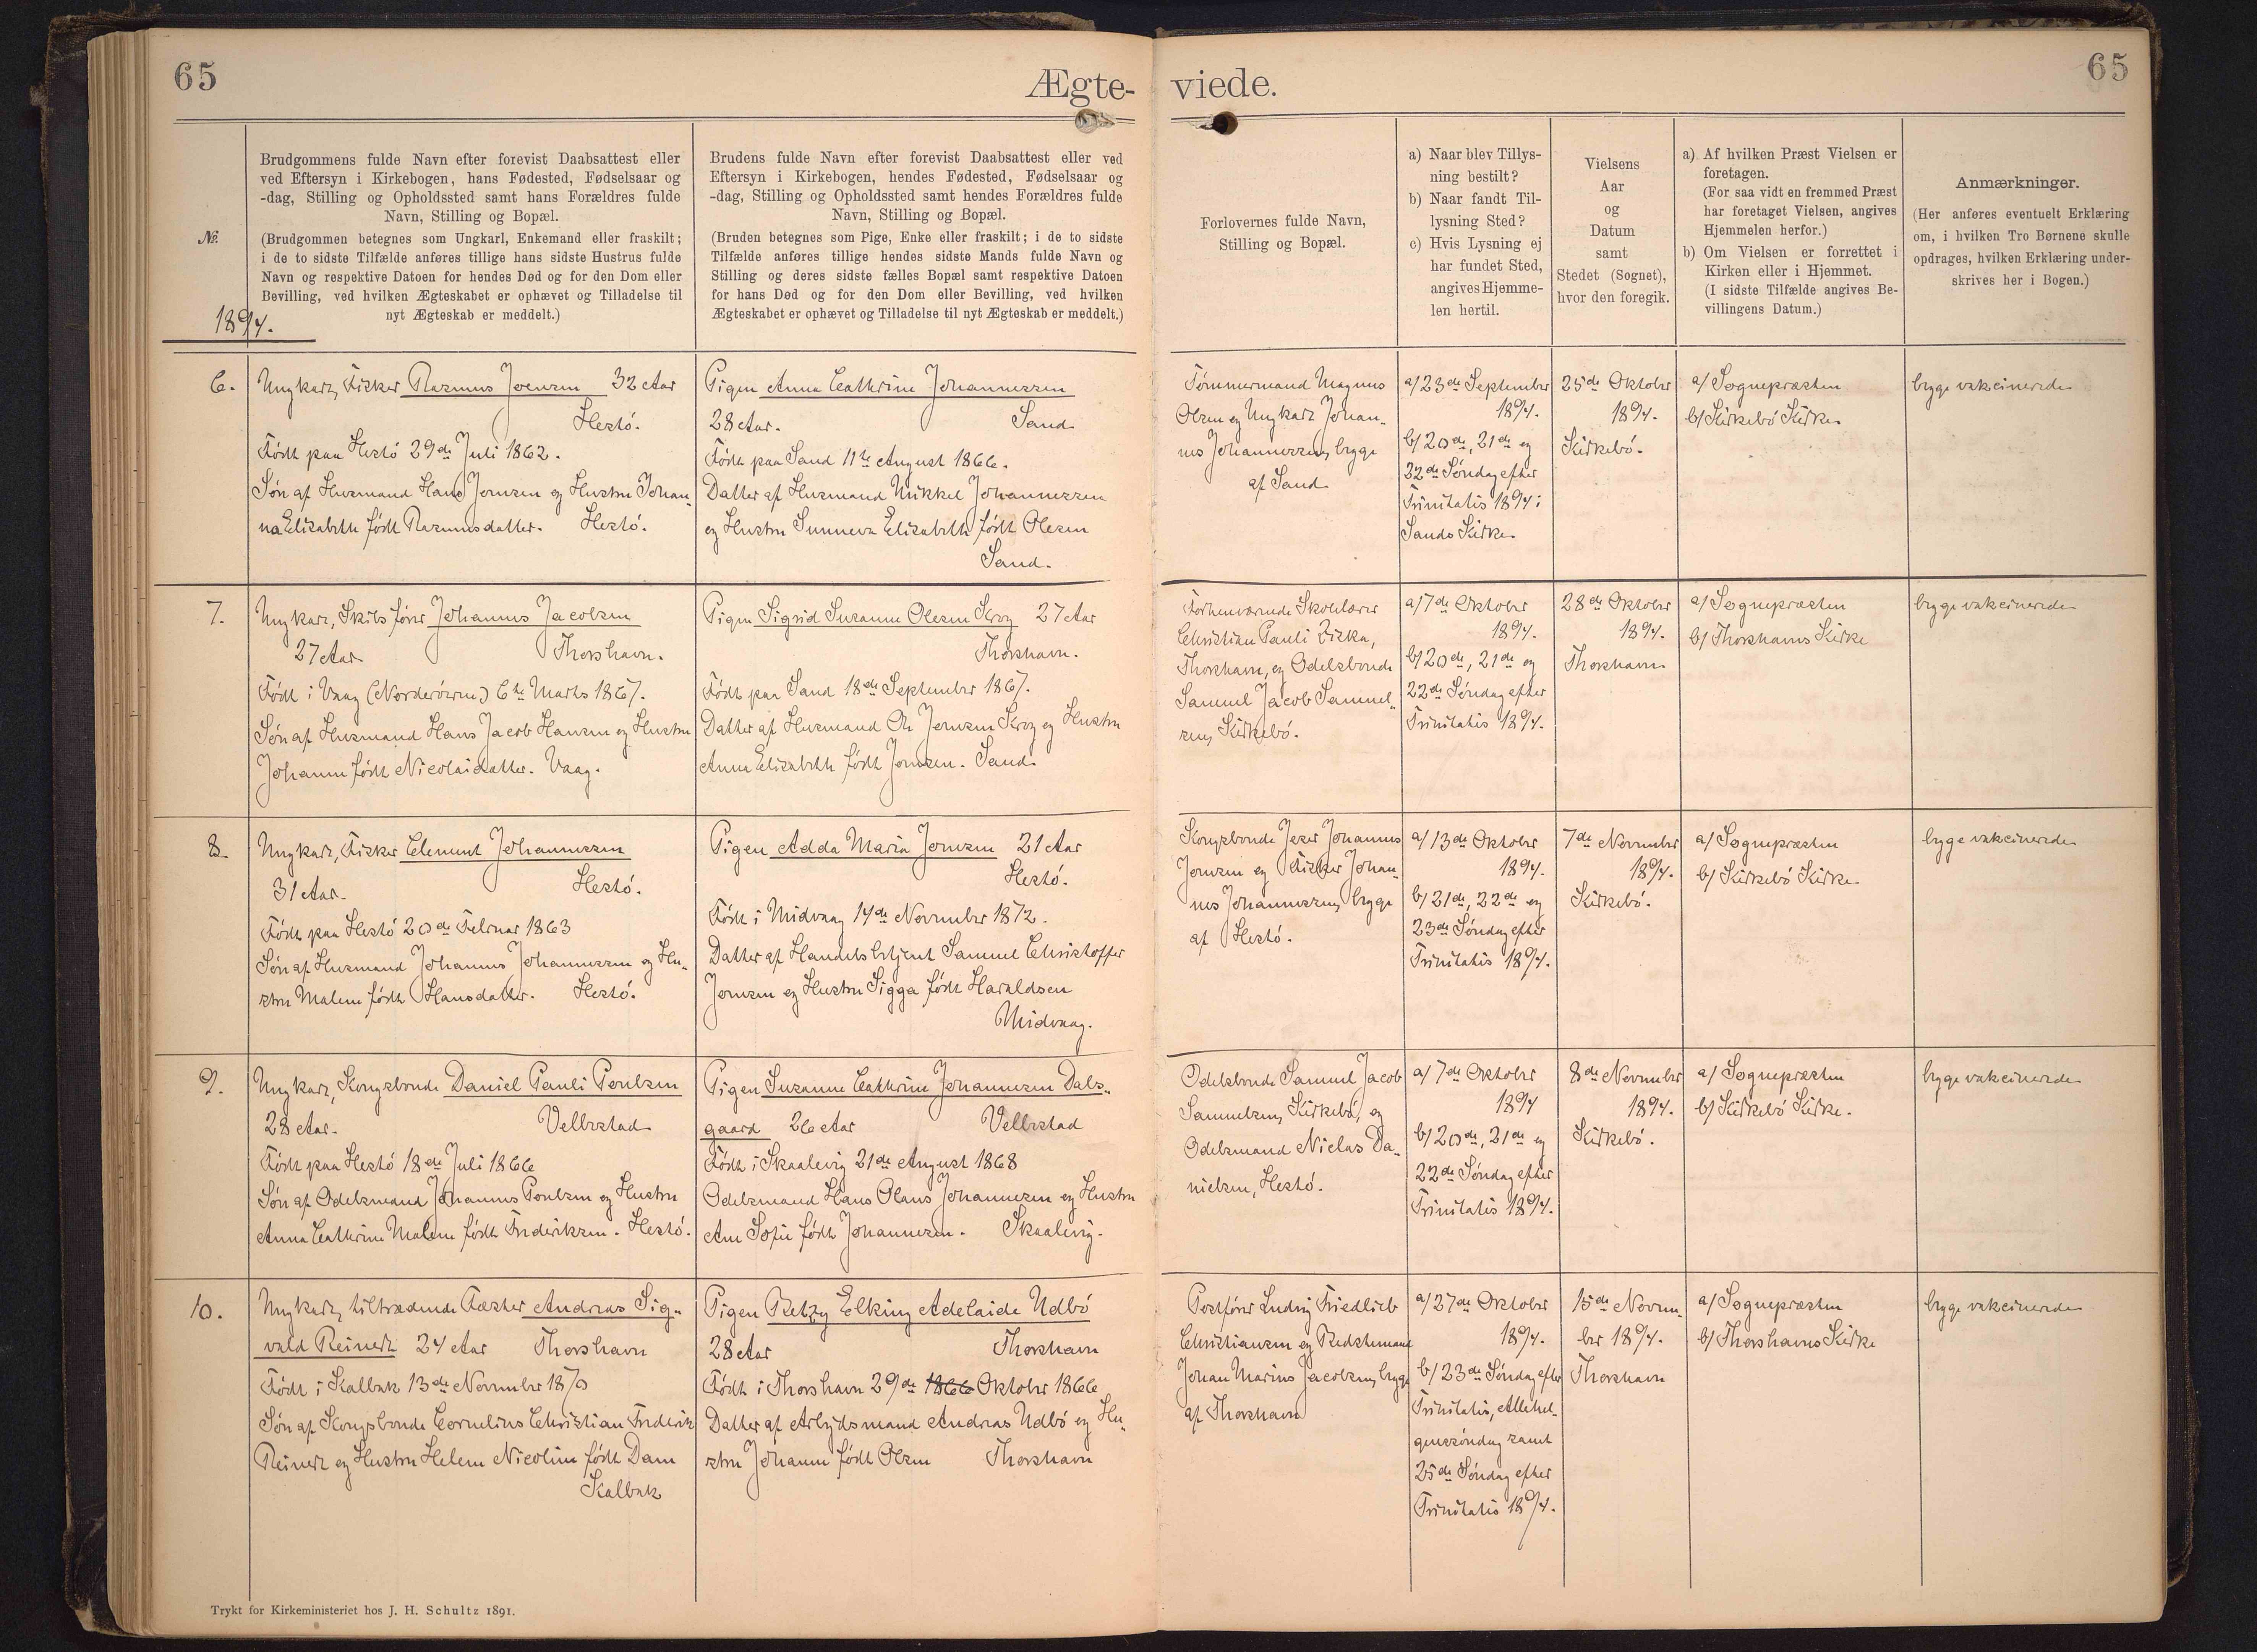 65
Ægte-
viede.
65
№.
Brudgommens fulde Navn efter forevist Daabsattest eller
ved Eftersyn i Kirkebogen, hans Fødested, Fødselsaar og
-dag, Stilling og Opholdssted samt hans Forældres fulde
Navn, Stilling og Bopæl.
(Brudgommen betegnes som Ungkarl, Enkemand eller fraskilt;
i de to sidste Tilfælde anføres tillige hans sidste Hustrus fulde
Navn og respektive Datoen for hendes Død og for den Dom eller
Bevilling, ved hvilken Ægteskabet er ophævet og Tilladelse til
nyt Ægteskab er meddelt.)
Brudens fulde Navn efter forevist Daabsattest eller ved
Eftersyn i Kirkebogen, hendes Fødested, Fødselsaar og
-dag, Stilling og Opholdssted samt hendes Forældres fulde
Navn, Stilling og Bopæl.
(Bruden betegnes som Pige, Enke eller fraskilt; i de to sidste
Tilfælde anføres tillige hendes sidste Mands fulde Navn og
Stilling og deres sidste fælles Bopæl samt respektive Datoen
for hans Død og for den Dom eller Bevilling, ved hvilken
Ægteskabet er ophævet og Tilladelse til nyt Ægteskab er meddelt.)
Forlovernes fulde Navn,
Stilling og Bopæl.
a) Naar blev Tillys-
ning bestilt?
b) Naar fandt Til-
lysning Sted?
c) Hvis Lysning ej
har fundet Sted,
angives Hjemme-
len hertil.
Vielsens
Aar
og
Datum
samt
Stedet (Sognet),
hvor den foregik.
a) Af hvilken Præst Vielsen er
foretagen.
(For saa vidt en fremmed Præst
har foretaget Vielsen, angives
Hjemmelen herfor.)
b) Om Vielsen er forrettet i
Kirken eller i Hjemmet.
(I sidste Tilfælde angives Be-
villingens Datum.)
Anmærkninger.
(Her anføres eventuelt Erklæring
om, i hvilken Tro Børnene skulle
opdrages, hvilken Erklæring under-
skrives her i Bogen.)
1894.
6.
Ungkarl, Fisker Rasmus Joensen 32 Aar
Hestø.
Født paa Hestø 29de Juli 1862.
Søn af Husmand Hans Joensen og Hustru Johan-
na Elisabeth født Rasmusdatter. Hestø.
Pigen Anna Cathrine Johannessen
28 Aar. Sand
Født paa Sand 11te August 1866.
Datter af Husmand Mikkel Johannessen
og Hustru Sunneva Elisabeth født Olesen
Sand.
Tømmermand Magnus
Olsen og Ungkarl Johan-
nes Johannessen, begge
af Sand
a/ 23de September
1894.
b/ 20de, 21de og
22de Søndag efter
Trinitatis 1894 i
Sands Kirke
25de Oktober
1894.
Kirkebø.
a/ Sognepræsten
b/ Kirkebø Kirke
begge vakcinerede
7.
Ungkarl, Skibsfører Johannes Jacobsen
27 Aar Thorshavn.
Født i Vaag (Norderøerne) 6te Marts 1867.
Søn af Husmand Hans Jacob Hansen og Hustru
Johanne født Nicolaidatter. Vaag.
Pigen Sigrid Susanne Olesen Krog 27 Aar
Thorshavn.
Født paa Sand 18de September 1867.
Datter af Husmand Ole Joensen Krog og Hustru
Anna Elisabeth født Joensen. Sand
Forhenværende Skolelærer
Christian Pauli Ziska,
Thorshavn, og Odelsbonde
Samuel Jacob Samuel-
sen, Kirkebø.
a/ 7de Oktober
1894.
b/ 20de, 21de og
22de Søndag efter
Trinitatis 1894.
28de Oktober
1894.
Thorshavn
a/ Sognepræsten
b/ Thorshavns Kirke
begge vakcinerede
8.
Ungkarl, Fisker Clement Johannessen
31 Aar. Hestø.
Født paa Hestø 20de Februar 1863
Søn af Husmand Johannes Johannessen og Hu-
stru Malene født Hansdatter. Hestø.
Pigen Adda Maria Joensen 21 Aar
Hestø.
Født i Midvaag 14de November 1872.
Datter af Handelsbetjent Samuel Christoffer
Joensen og Hustru Sigga født Haraldsen
Midvaag.
Kongsbonde Johannes
Joensen og Fisker Johan-
nes Johannessen, begge
af Hestø.
a/ 13de Oktober
1894.
b/ 21de, 22de og
23de Søndag efter
Trinitatis 1894.
7de November
1894.
Kirkebø.
a/ Sognepræsten
b/ Kirkebø Kirke.
begge vakcinerede
9.
Ungkarl, Kongsbonde Daniel Pauli Poulsen
28 Aar. Velbestad
Født paa Hestø 18de Juli 1866
Søn af Odelsmand Johannes Poulsen og Hustru
Anna Cathrine Malene født Frederiksen. Hestø.
Pigen Susanne Cathrine Johannesen Dals-
gaard 26 Aar Velbestad
Født i Skaalevig 21de August 1868
Odelsmand Hans Olaus Johannesen og Hustru
Ane Sofie født Johannesen. Skaalevig.
Odelsbonde Samuel Jacob
Samuelsen, Kirkebø, og
Odelsmand Niclas Da-
nielsen, Hestø.
a/ 7de Oktober
1894
b/ 20de, 21de og
22de Søndag efter
Trinitatis 1894.
8de November
1894.
Kirkebø.
a/ Sognepræsten
b/ Kirkebø Kirke.
begge vakcinerede
10.
Ungkarl, tiltrædende Fæster Andreas Sig-
vald Reinert 24 Aar Thorshavn
Født i Kalbak 13de November 1870
Søn af Kongsbonde Cornelius Christian Frederik
Reinert og Hustru Helene Nicoline født Dam
Kalbak
Pigen Betzy Elking Adelaide Udbø
28 Aar Thorshavn
Født i Thorshavn 29de 1866 Oktober 1866
Datter af Arbejdsmand Andreas Udbø og Hu-
stru Johanne født Olsen Thorshavn
Postfører Ludvig Friedlieb
Christiansen og
Johan Marius Jacobsen, begge
af Thorshavn
a/ 27de Oktober
1894.
b/ 23de Søndag efter
Trinitatis, Allehel-
genssøndag samt
25de Søndag efter
Trinitatis 1894.
15de Novem-
ber 1894.
Thorshavn
a/ Sognepræsten
b/ Thorshavns Kirke
begge vakcinerede
Trykt for Kirkeministeriet hos J. H. Schultz 1891.